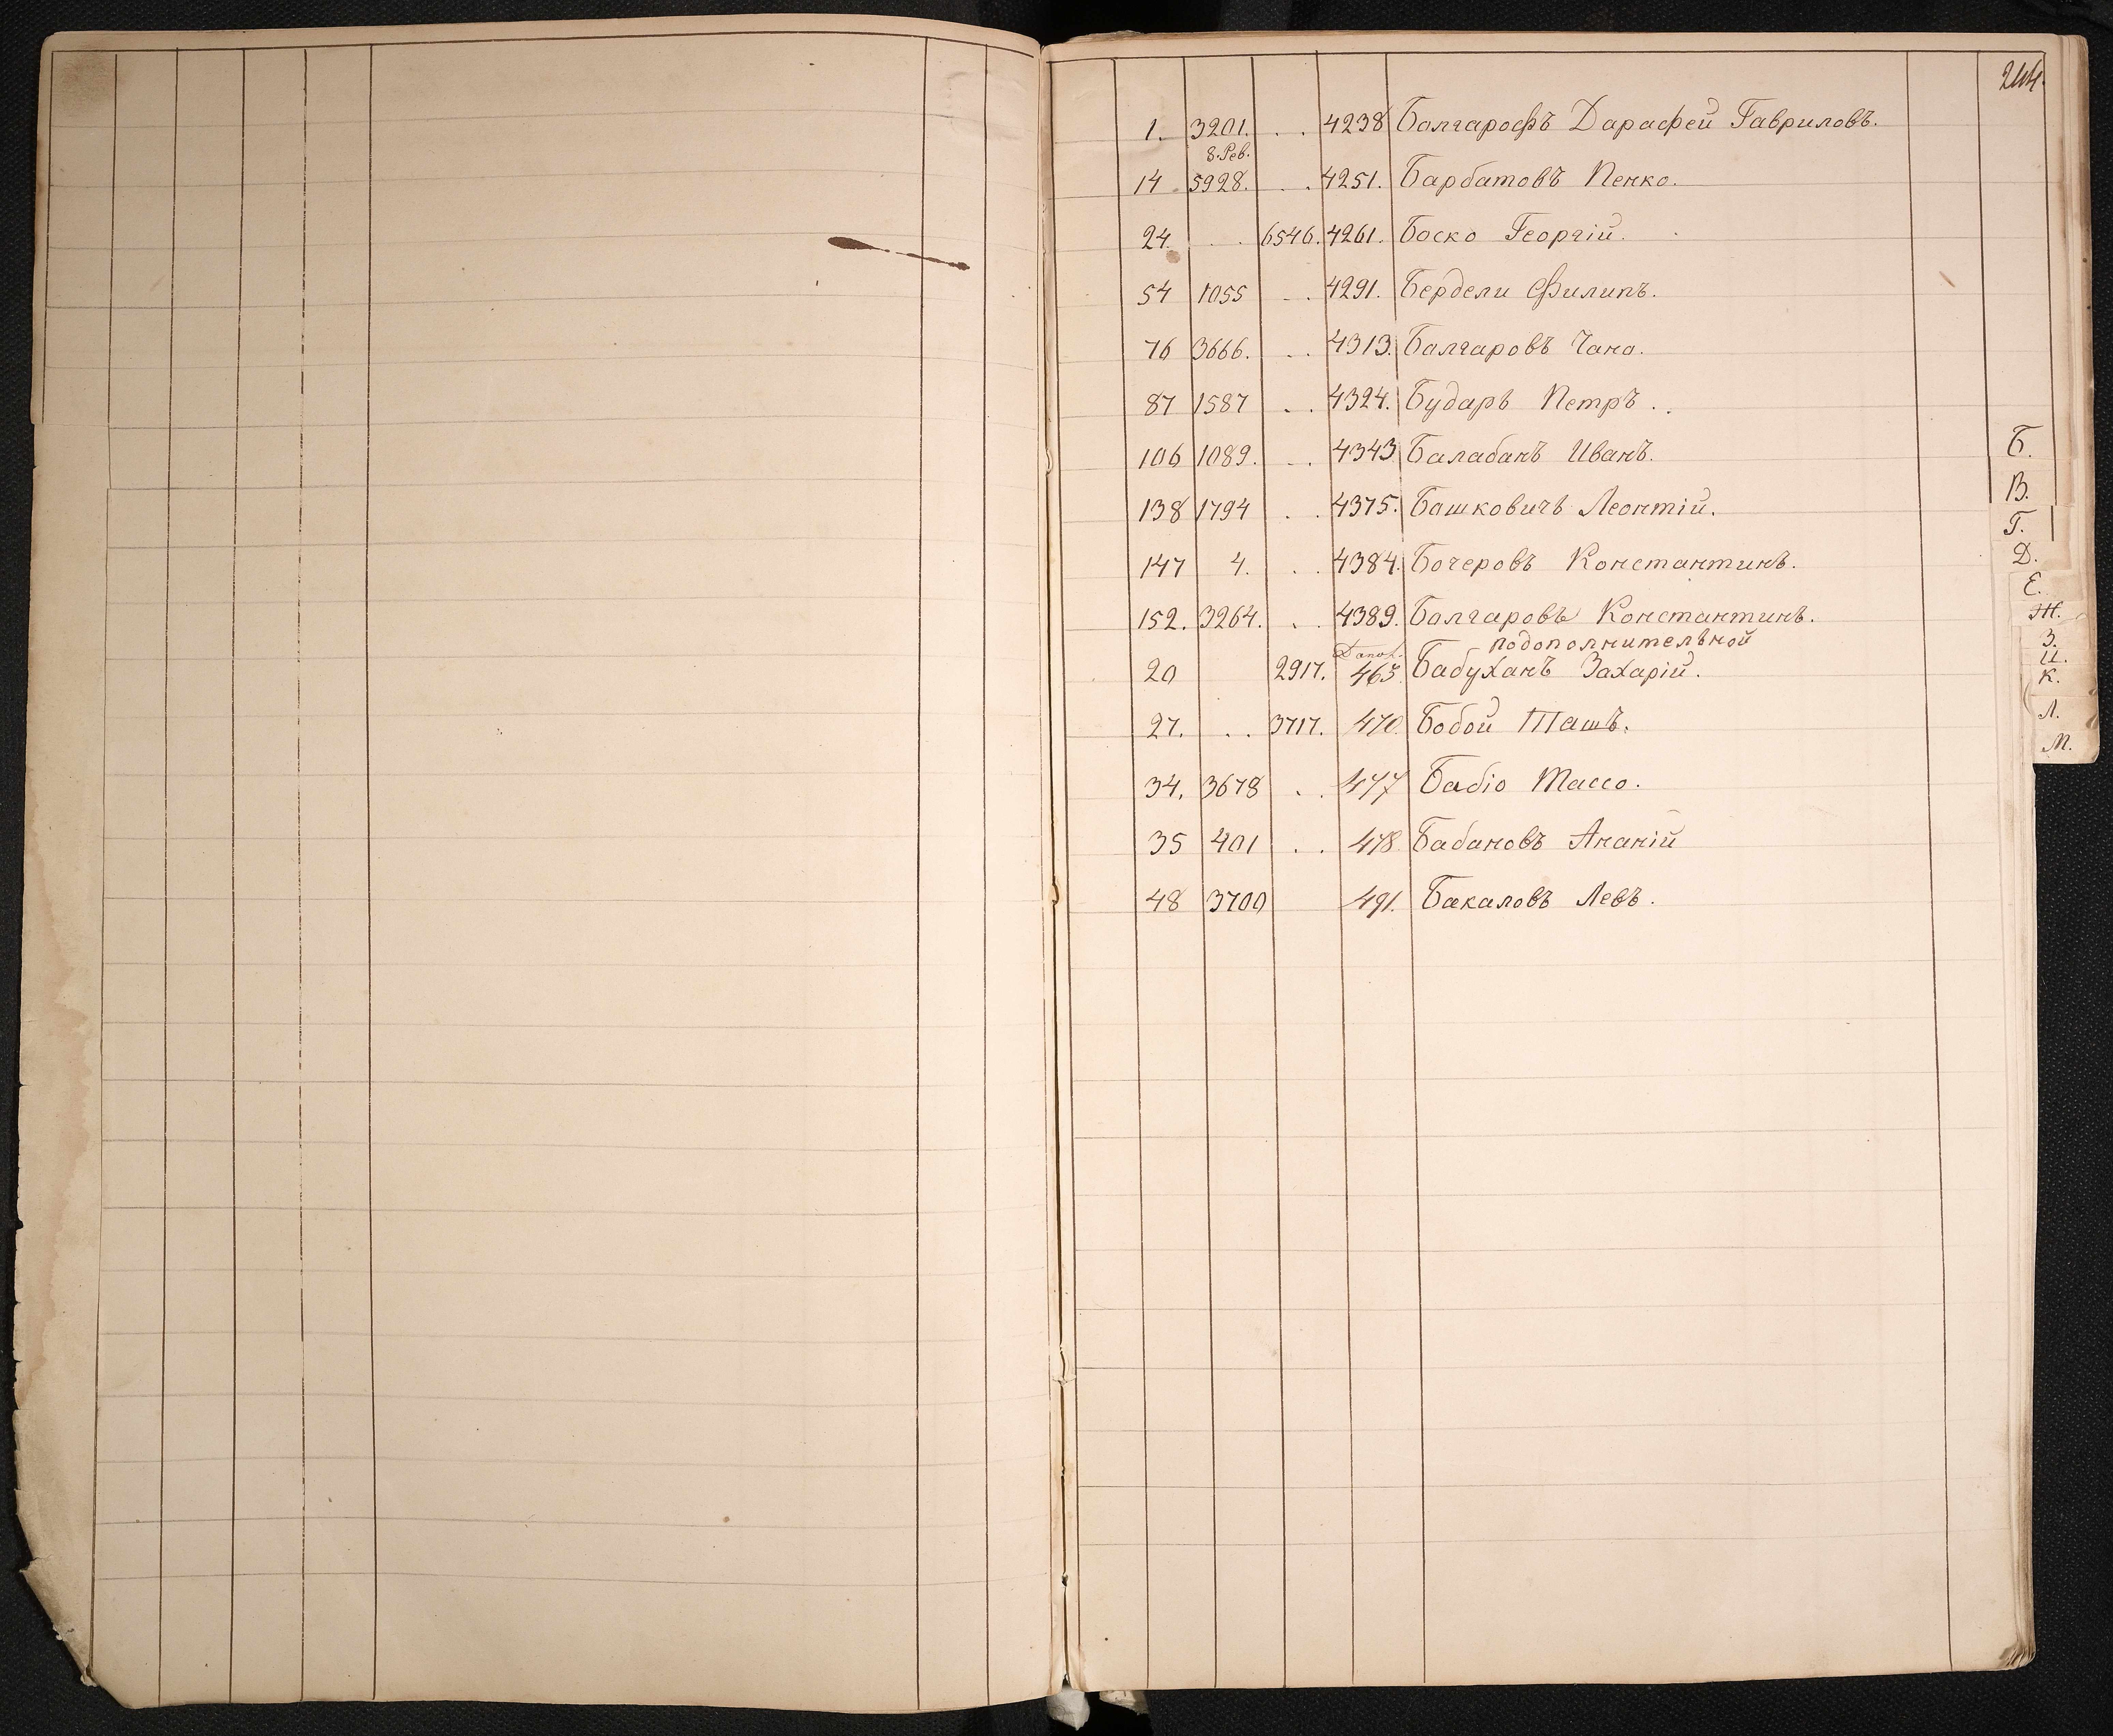 244.
1. 3201. . . 4238 Болгарофъ Дарафей Гавриловъ.
8. Рев.
14 . 5928. . . 4251. Барбатовъ Пенко.
24. . . 6546. 4261. Боско Георгій.
54 1055 . . 4291. Бердели Филипъ.
76 3666. . . 4313. Болгаровъ Чано.
87 1587 . . 4324. Бударь Петръ .
106 1089. . . 4343 Балабанъ Иванъ.
138 1794 . . 4375. Башковичъ Леонтій.
147 4. . . 4384. Бочеровъ Константинъ.
152. 3264. . . 4389. Болгаровъ Константинъ.
подополнительной
20 2917. 463. Бабуханъ Захарій.
27. . . 3717. 470. Бобой Ташъ.
34. 3678 . . 477 Бабіо Тассо.
35 401 . . 478 Бабановъ Ананій
48 3700 491. Бакаловъ Левъ.
Б.
В.
Г.
Д.
Е.
Ж.
З.
И.
К.
Л.
М.